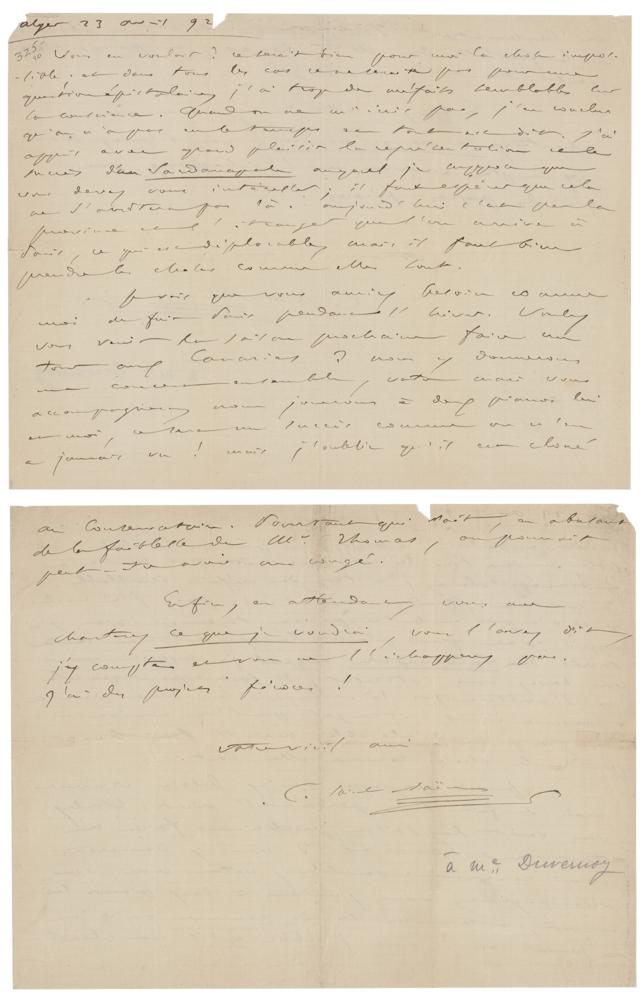 Alger 23 avril 92
325-
Vous en vouloir ? ce serait bien pour moi la chose impos-
-sible, et dans tous les cas ce ne serait pas pour une
question épistolaire, j'ai trop de méfaits semblables sur
la conscience. Quand on ne m'écrit pas, j'en conclus
qu'on n'a pas eu le temps et tout est dit. J'ai
appris avec grand plaisir la représentation et le
succès d'un Sardanapale auquel je suppose que
vous devez vous intéresser ; il faut espérer que cela
ne s'arrêtera pas là. Aujourd'hui c'est par la
province et l'étranger que l'on arrive à
Paris, ce qui est déplorable, mais il faut bien
prendre les choses comme elles sont.
Je vois que vous auriez besoin comme
moi de fuir Paris pendant l'hiver. Voulez
vous venir la saison prochaine faire un
tour aux Canaries ? nous y donnerons
un concert ensemble, votre mari vous
accompagnera, nous jouerons à deux pianos lui
et moi, ce sera un succès comme on n'en
a jamais vu ! mais j'oublie qu'il est cloué
au Conservatoire. Pourtant qui sait, en abusant
de la faiblesse de Mr Thomas, on pourrait
peut-être avoir un congé.
Enfin, en attendant, vous me
chanterez ce que je voudrai, vous l'avez dit,
j'y compte et vous ne l'échapperez pas.
J'ai des projets féroces !
votre vieil ami
C. Saint-Saëns
à Me Duvernoy